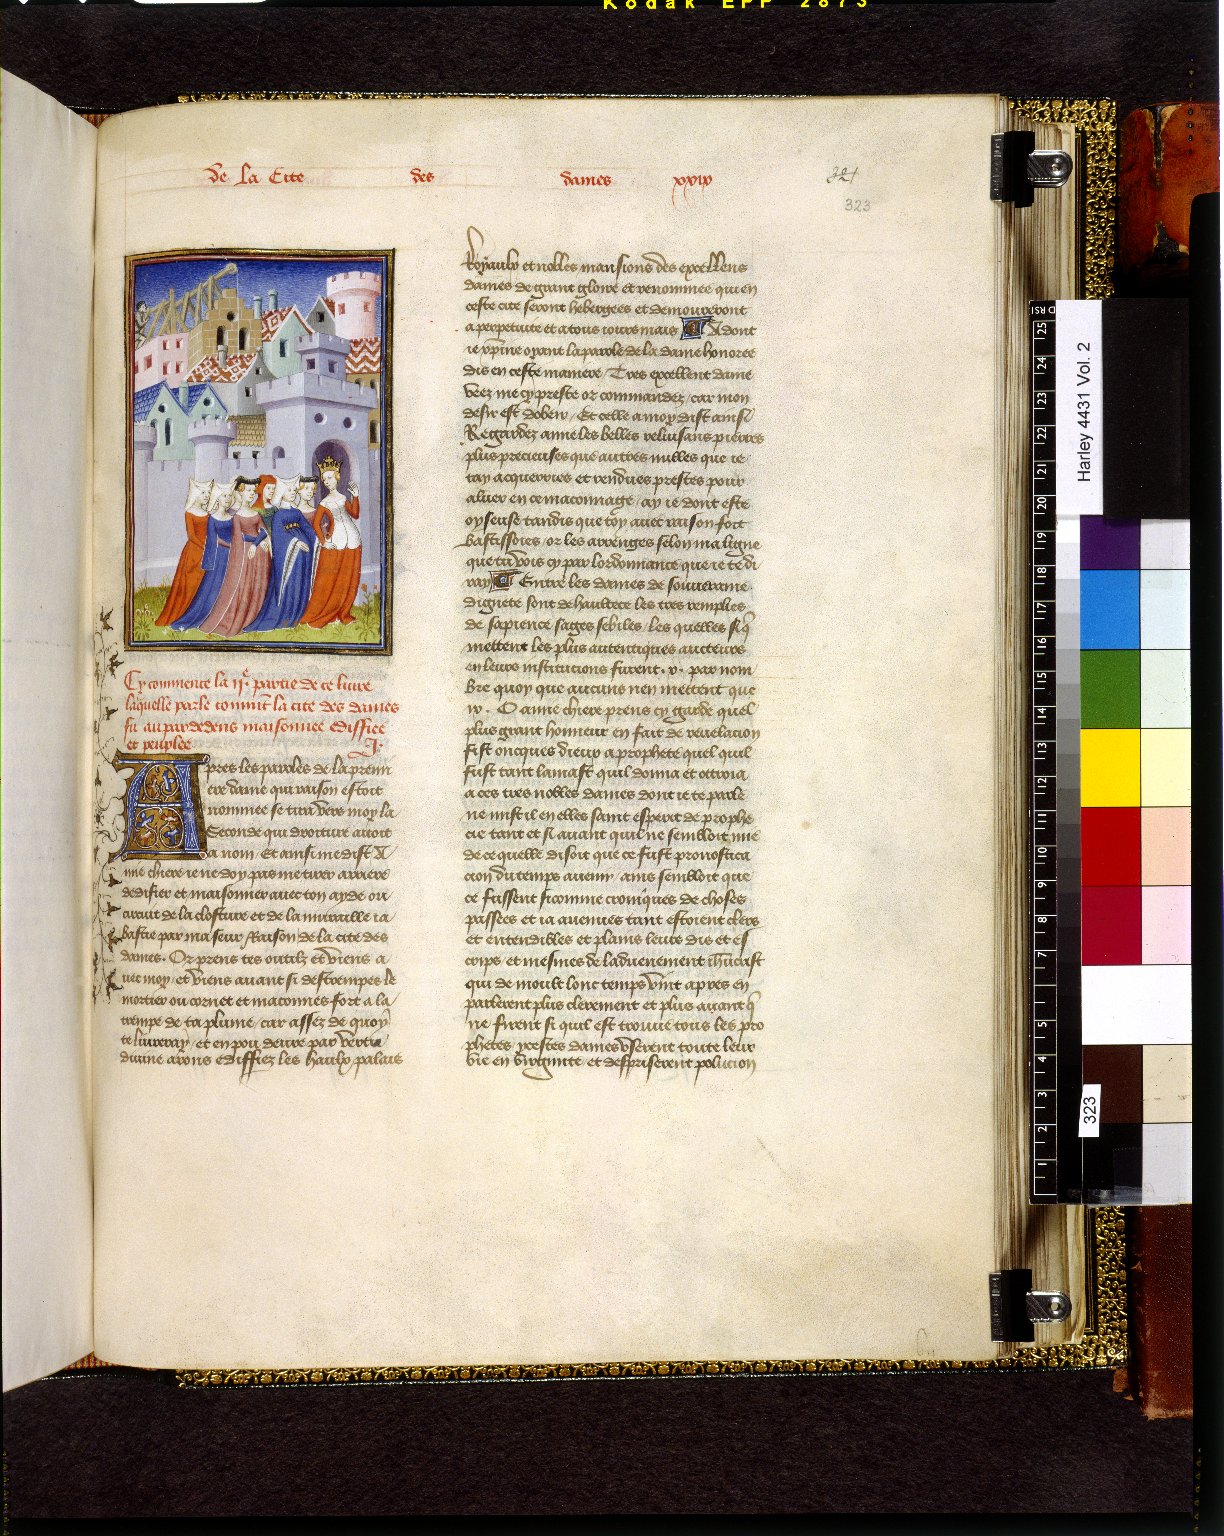 Kodak EPP 2873
de la Cite des dames xxix
321
323
Cy commence la IIe. partie de ce livre
laquelle parle comment la cite des dames
fu au par dedens maisonnee ediffiee
et peuplee I.
Apres les paroles de la premi
ere dame qui raison estoit
nommee se tira vers moy la
seconde qui droitture avoit
a nom et ainsi me dist X
ine chiere ie ne doy pas me tirer arriere
dediffier et maisonner avec ton ayde ou
circuit de la closture et de la muraille ia
bastie par ma seur Raison de la cite des
dames. Or prens tes outilz et viens a
vec moy et viens avant si destrempes le
mortier ou cornet et maconnes fort a la
trempe de ta plume car assez de quoy
te livreray et en pou deure par vertu
divine arons ediffiez les haulx palais
Royaulx et nobles mansions des excellens
dames de grant gloire et renommee qui en
ceste cite seront hebergees et demoureront
a perpetuite et a tous iours mais A X dont
ie xpine oyant la parole de la dame honoree
dis en ceste maniere / Tres excellent dame
veez me cy preste or commandez / car mon
desir est dobeir / Et celle a moy dist ainsi
Regardez amie les belles reluisans pierres
plus precieuses que autres nulles que ie
tay acquerues et rendues prestes pour
aluer en ce maconnage / ay ie dont este
oyseuse tandis que toy avec raison fort
bastissoies / or les arrenges selon ma ligne
que tu vois cy par lordonnance que ie te di
ray Entre les dames de souveraine
dignete sont de haultece les tres remplies
de sapience sages sebiles / les quelles si q
mettent les plus autentiques aucteurs
en leurs institucions furent .x. par nom
bre quoy que aucuns nen mettent que
ix. O amie chiere prens cy garde quel
plus grant honneur en fait de revelacion
fist oncques dieux a prophete quel quil
fust tant lamast quil donna et ottroia
a ces tres nobles dames dont ie te parle
ne mist il en elles saint esperit de prophe
cie tant et si avant quil ne sembloit mie
de ce quelle disoit que ce fust pronostica
cion du temps avenir / ains sembloit que
ce fussent si comme croniques de choses
passees et ia avenues tant estoient clers
et entendibles et plains leurs dis et es
crips / et mesmes de ladvenement ihucrist
qui de moult lonc temps vint apres en
parlerent plus clerement et plus avant q
ne firent si quil est trouve tous les pro
phetes / cestes dames userent toute leur
vie en virginite / et despriserent polucion
Harley 4431 Vol. 2
25
24
23
22
21
20
19
18
17
16
15
14
13
12
11
10
9
8
7
5
4
3
2
1
323